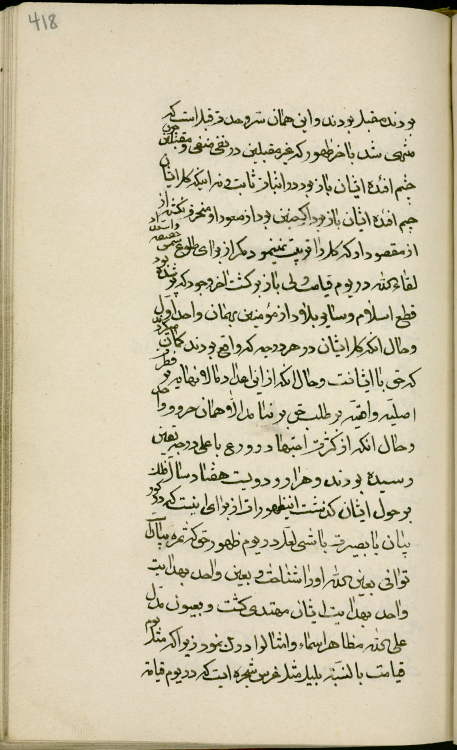 418
بودند مقبل بودند و این همان سر وحدت قبل است که
منتهی شد باخر ظهور که غیر مقبلین در نفی منفی و مقبلین
چشم افئدهٔ ایشان باز بود در اثبات ثابت و نه اینکه کل ایشان
چشم افئدهٔ ایشان باز بود اگر چنین بود از مقصود او منحرف نگشته
از مقصود او که کل را تربیت نمینمود مگر از برای طلوع شمس
لقاء الله در یوم قیامت ولی باز بر کشت اخر وجود که
قطع اسلام و سایر بلاد از مؤمنین بهمان واحد اول
و حال انکه کل ایشان در هر درجه که واقع بودند گمان
که حق با ایشانست و حال انکه از این اعداد مالا نهایه
اصلیه واهیه در طلب حق بر نیامد الا همان حروف و ا
و حال انکه از کثرت اجتهاد و ورع باعلی درجه یقین
رسیده بودند و هزار و دویست هفتاد سال فلک
بر حول ایشان گذشت اینظهورات از برای اینست که در کور
بیان با بصیرت باشی لعل در یوم ظهور حق که ثمرهٔ بیان
توانی بعین الله او را شناخت و بعین واحد بهدایت
واحد بهدایت ایشان مهتدی گشت و بعیون مدل
علی الله مظاهر اسماء و امثال را درک نمود زیرا که مثل یوم
قیامت بالنسبة بلیل مثل غرس شجره ایست که در یوم قیامة